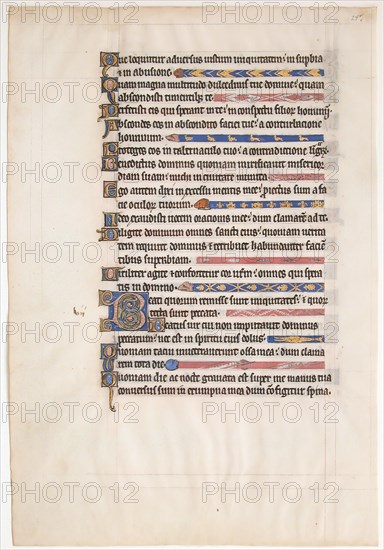 Que loquntur adversus iustum iniquitatem: in supbia
& in abusione.
Quam magna multitudo dulcedinis tue domine: quam
abscondisti timentibz te.
Perfecisti eis qui sperant in te: in conspectu filior hominũ
Abscondes eos in abscondito faciei tue: a conturbatione
hominum.
Proteges eos in tabernaculo tuo: a contradictione ligz
Benedictus dominus quoniam mirificavit misericor
diam suam: michi in civitate munita.
Ego autem dixi in excessu mentis mee: proiectus sum a fa
cie oculor tuorum.
Ideo exaudisti vocem orationis mee: dum clamarē ad te.
Diligite dominum omnes sancti eius: quoniam verita
tem requiret dominus & retribuet habundanter faciē
tibus superbiam.
Viriliter agite & confortetur cor vrm: omnes qui spera
tis in domino.
Beati quorum remisse sunt iniquitates: & quor
tecta sunt peccata.
Beatus vir cui non imputavit dominus
peccatum: nec est in spiritu eius dolus.
Quoniam tacui inveteraverunt ossa mea: dum clama
rem tota die.
Quoniam die ac nocte gravata est super me manus tua
conversus sum in erumpna mea dum cōfigitur spina.
PHOTO 12